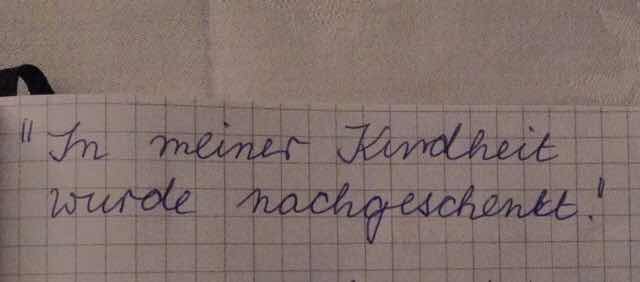 "In meiner Kindheit
wurde nachgeschenkt."